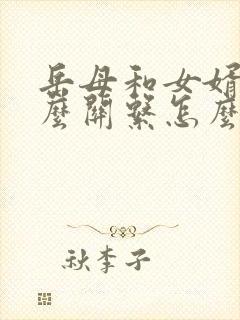 岳母和女婿
麼關繫怎麼
秋李子